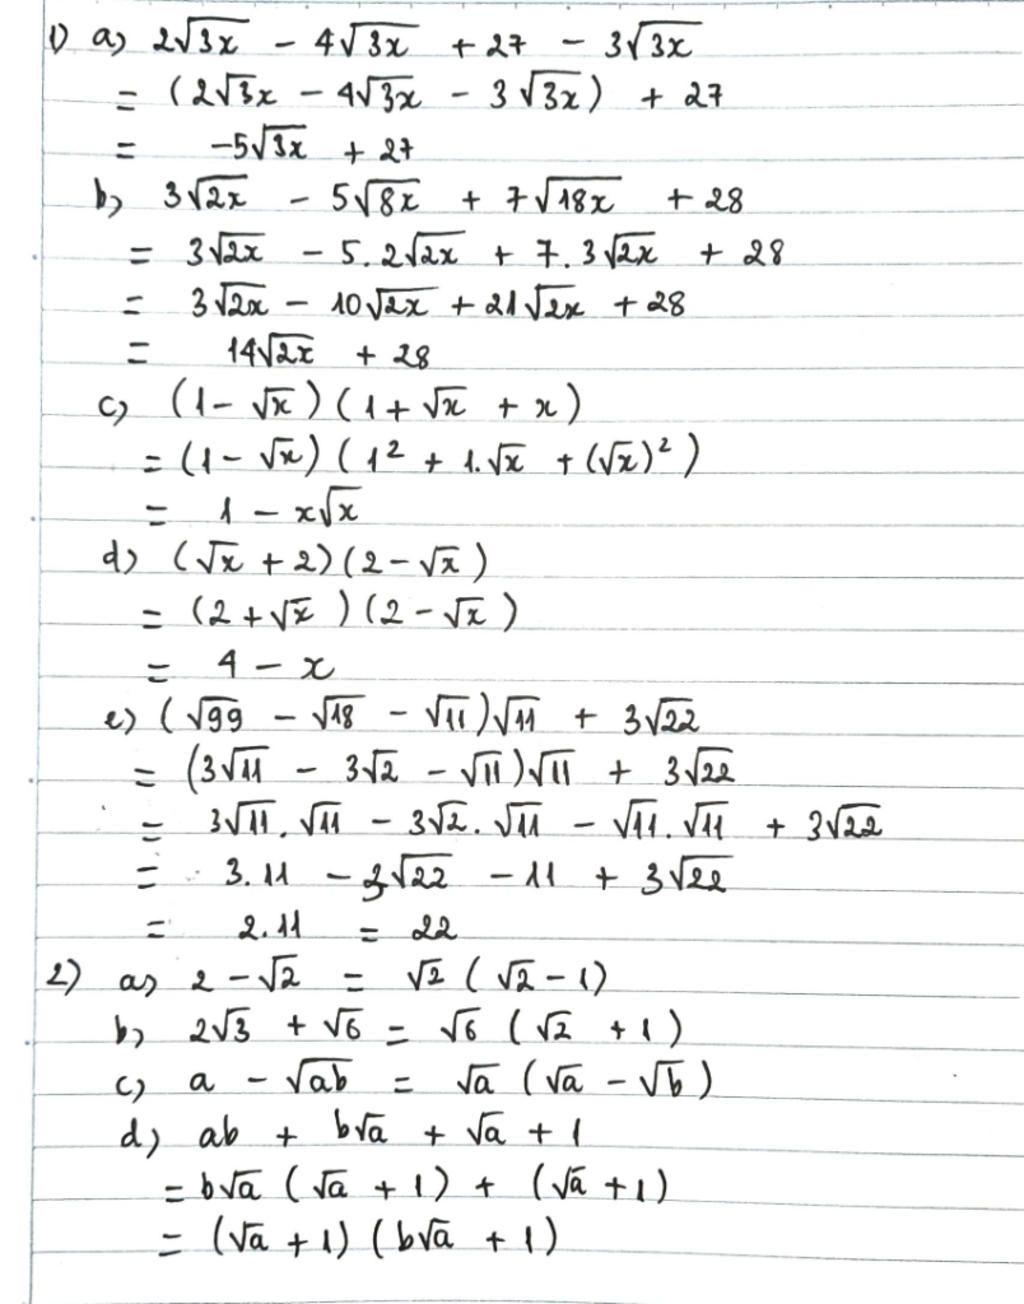 1) a) 2√3x - 4√3x + 27 - 3√3x
= (2√3x - 4√3x - 3√3x) + 27
= -5√3x + 27
b) 3√2x - 5√8x + 7√18x + 28
= 3√2x - 5.2√2x + 7.3√2x + 28
= 3√2x - 10√2x + 21√2x + 28
= 14√2x + 28
c) (1 - √x)(1 + √x + x)
= (1 - √x)(1² + 1.√x + (√x)²)
= 1 - x√x
d) (√x + 2)(2 - √x)
= (2 + √x)(2 - √x)
= 4 - x
e) (√99 - √18 - √11)√11 + 3√22
= (3√11 - 3√2 - √11)√11 + 3√22
= 3√11.√11 - 3√2.√11 - √11.√11 + 3√22
= 3.11 - 3√22 - 11 + 3√22
= 2.11 = 22
2) a) 2 - √2 = √2(√2 - 1)
b) 2√3 + √6 = √6(√2 + 1)
c) a - √ab = √a(√a - √b)
d) ab + b√a + √a + 1
= b√a(√a + 1) + (√a + 1)
= (√a + 1)(b√a + 1)